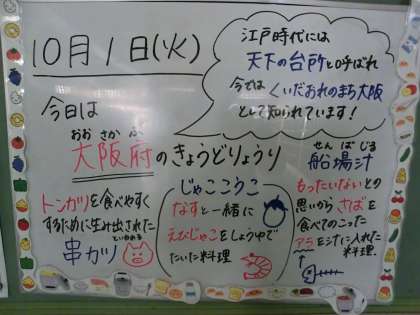 10月1日(火)
江戸時代には
天下の台所と呼ばれ
今では くいだおれのまち大阪
として知られています!
今日は
おお さか ふ
大阪府のきょうどりょうり
トンカツを食べやすく
するために生み出された
といわれる
串カツ
じゃここうこ
なすと一緒に
えびじゃこをしょうゆで
たいた料理
せん ば じる
船場汁
もったいないとの
思いからさばを
食べてのこった
アラを汁に入れた
料理